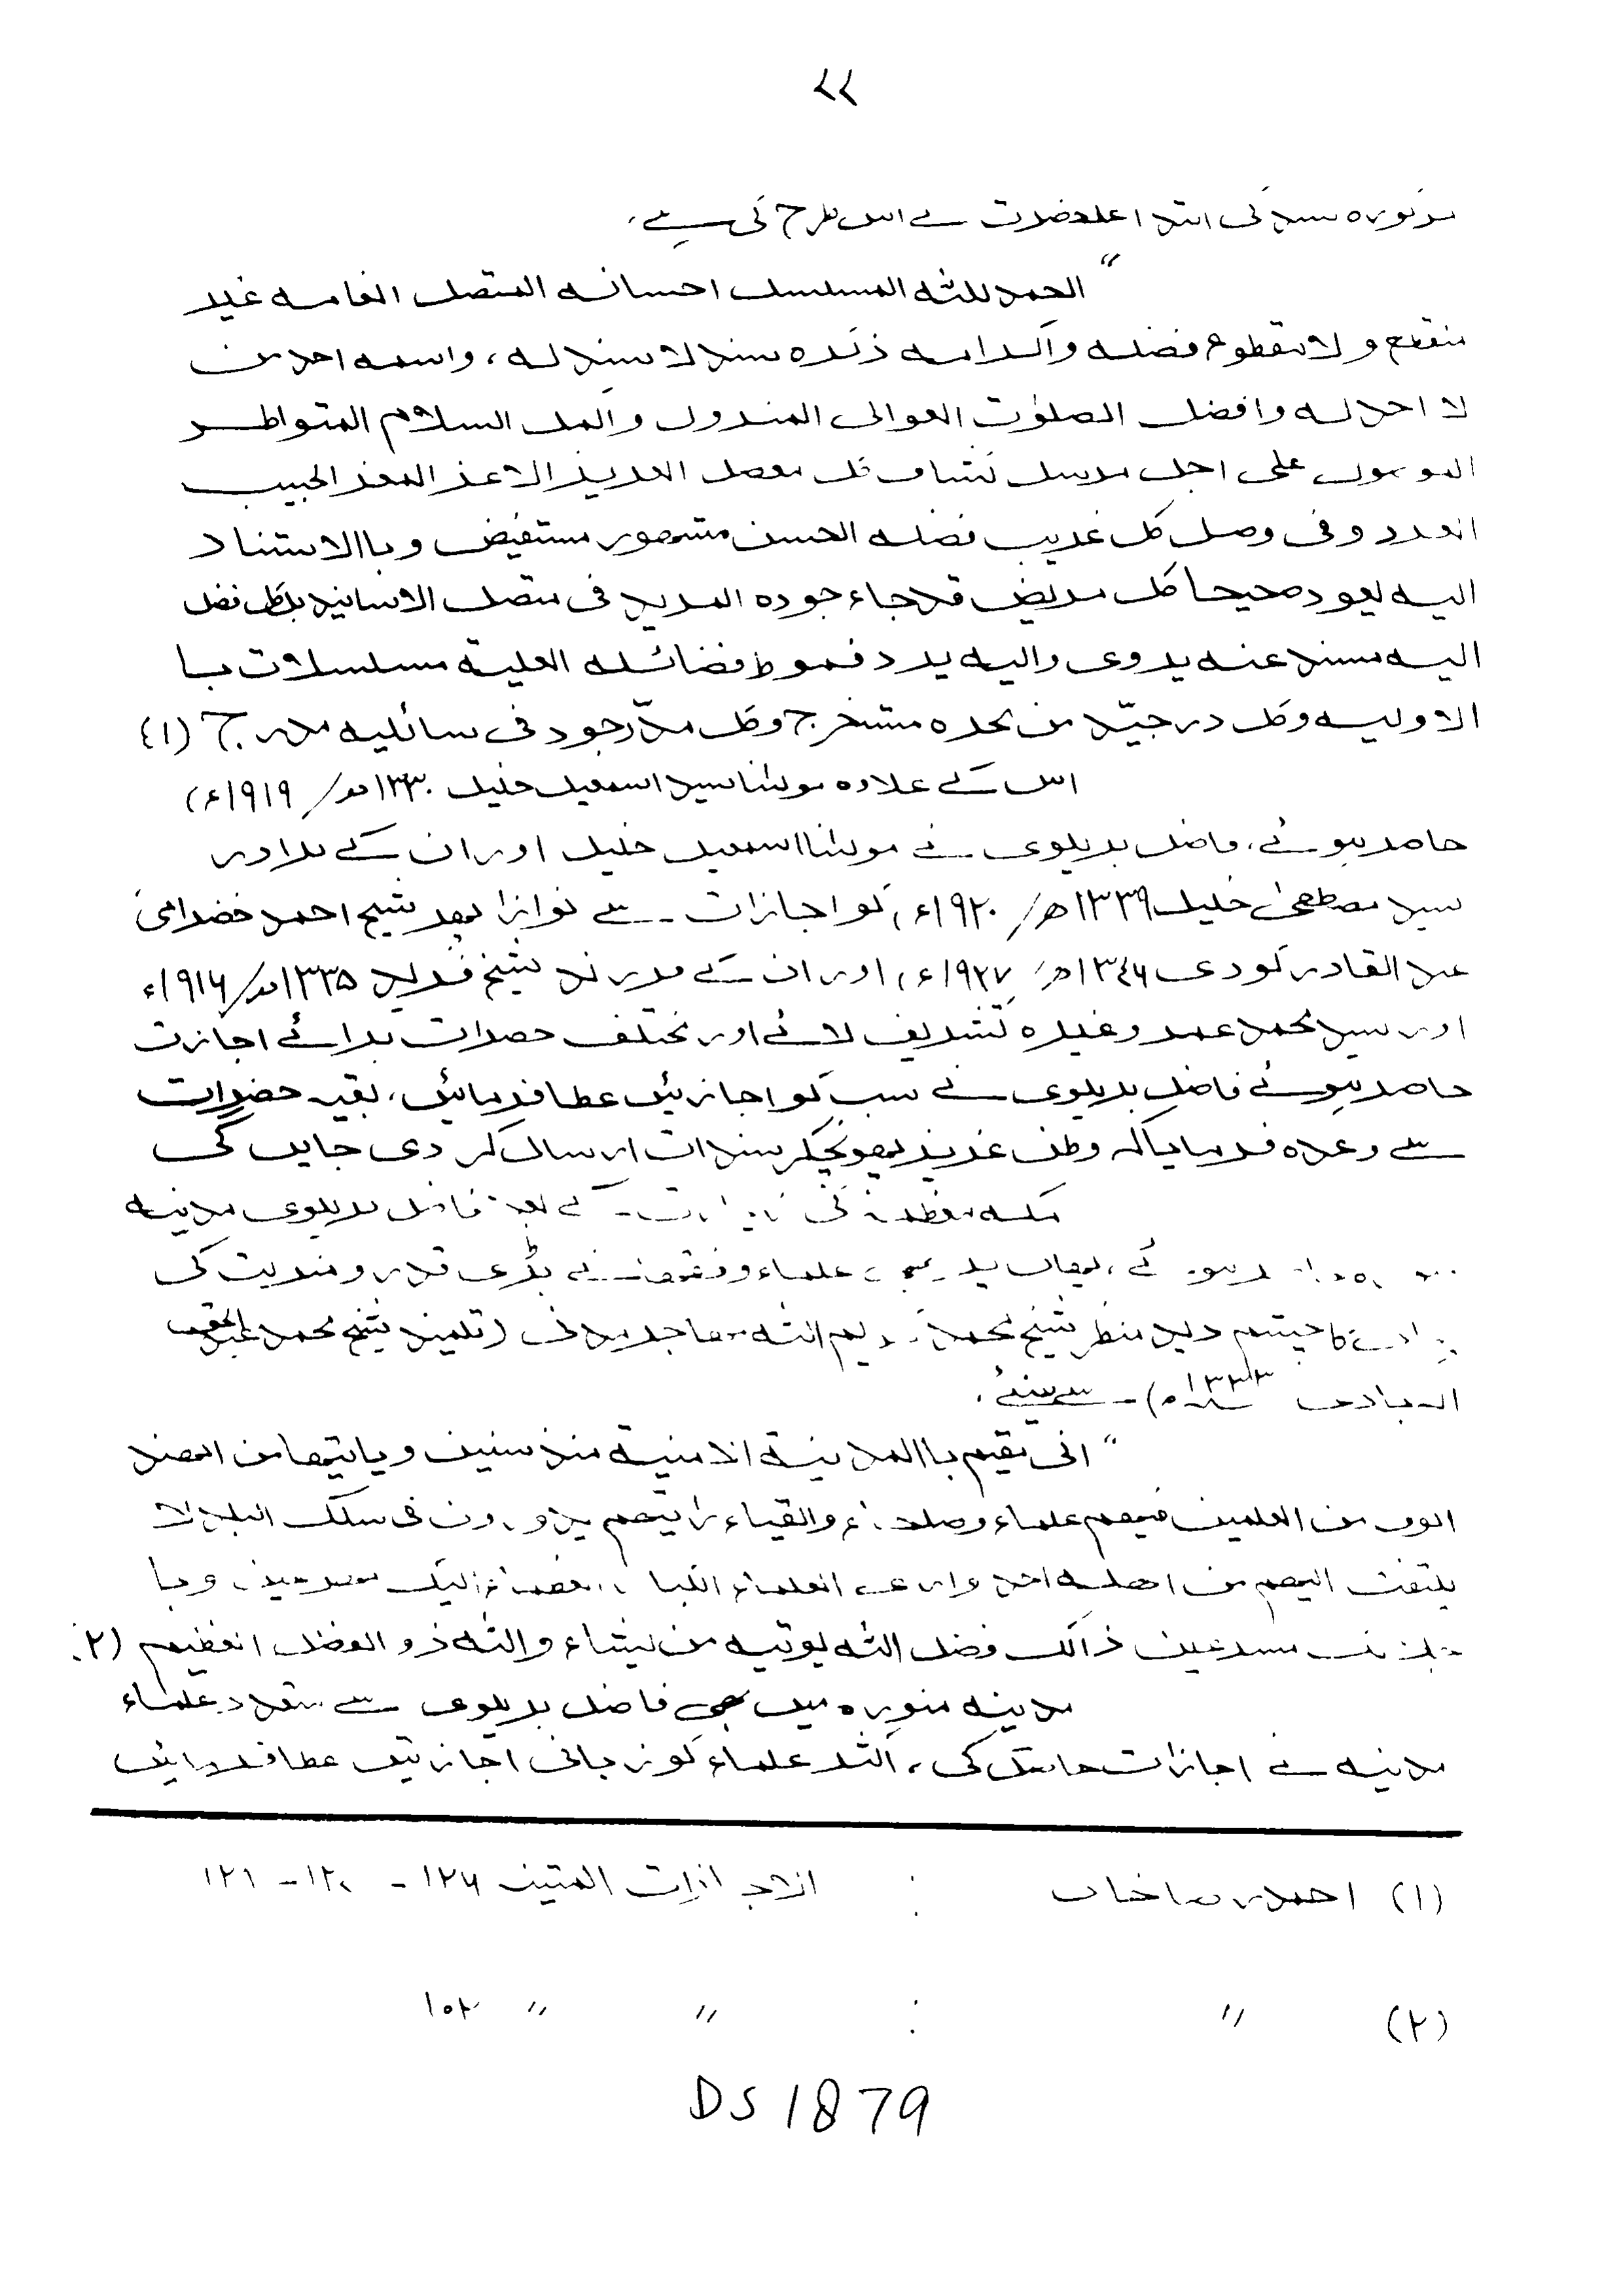 ٢٢
مذکورہ سند کی ابتدا اعلحضرت نے اس طرح کی ہے،
"الحمد للہ المسلسل احسانہ المتصل انعامہ غیر
منقطع ولا مقطوع فضلہ واکرامہ ذکرہ سند لا سند لہ، واسمہ احد من
لا احد لہ وافضل الصلوٰت العوالی المنزول واکمل السلام المتواطر
الموصول علی اجل مرسل کشاف کل معضل العزیز الاعز المعز الحبیب
الفرد وفی وصل کل غریب فضلہ الحسن مشھور مستفیض وباالاستناد
الیہ یعود صحیحا کل مریض قد جاء جودہ المزید فی متصل الاسانید بل کل فضل
الیہ مسند عنہ یروی والیہ یرد فموط فضائلہ العلیۃ مسلسلات با
الاولیہ وکل در جیّد من بحرہ مستخرج وکل مدّرجود فی سائلیہ مدرج (١)
اس کے علاوہ مولٰنا سید اسمعیل خلیل ١٣٣٠ھ/ ١٩١٩ء)
حاضر ہوئے، فاضل بریلوی نے مولٰنا اسمعیل خلیل اور ان کے برادر
سید مصطفیٰ خلیل ١٣٣٩ھ/ ١٩٢٠ء) کو اجازات سے نوازا بعد شیخ احمد خضراوی
عبد القادر کودی ١٣٤٦ھ/ ١٩٢٧ء) اور ان کے فرزند شیخ فرید ١٣٣٥ھ/١٩١٦ء
اور سید محمد عمر وغیرہ تشریف لائے اور مختلف حضرات برائے اجازت
حاضر ہوئے فاضل بریلوی نے سب کو اجازتیں عطا فرمائیں، بقیہ حضرات
سے وعدہ فرمایا کہ وطن عزیز پھونچکر سندات ارسال کر دی جایں گی
مکہ معظمہ کی زیارت کے بعد فاضل بریلوی مدینہ
حاضر ہوئے، یھاں پر بھی علماء و نے بڑی قدر و منزلت کی
کا چشم دید منظر شیخ محمد کریم اللہ مھاجر مدنی (تلمیذ شیخ محمد عبدالحق
الہ بادی ١٣٣٣ھ) سے سنیئے،
"انی مقیم باالمدینۃ الامنیۃ منذ سنین ویاتیھا من الھند
الوف من العلمین فیھم علماء وصلحاء والقیاء رایتھم یدورون فی سلک البلد لا
یلتفت الیھم من اھلہ احد واری العلماء الکبار العظماء الیک مھرعین وبا
مسرعین ذالک فضل اللہ یوتیہ من یشاء واللہ ذو الفضل العظیم (٢)
مدینہ منورہ میں بھی فاضل بریلوی سے متعدد علماء
مدنیہ نے اجازات حاصل کی، اکثر علماء کو زبانی اجازتیں عطا فرمائیں
(١) احمد رضا خاں : الاجازات المتینہ ١٢٦ - ١٢٠ - ١٢١
(٢) " : " " ١٠٢
DS 1879